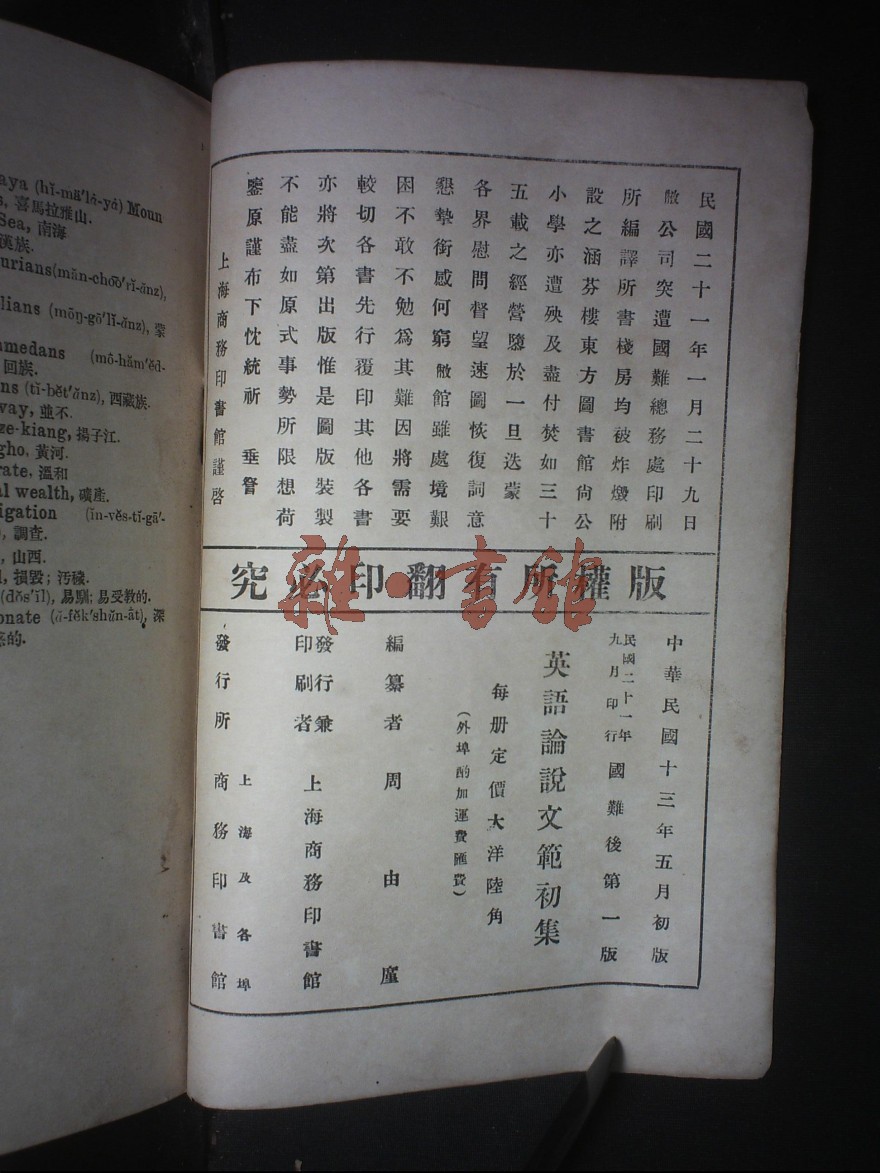 aya (hĭ-mä′lȧ-yȧ) Moun
s, 喜馬拉雅山.
Sea, 南海
漢族.
urians(măn-chōō′rĭ-ănz),
lians (mŏŋ-gō′lĭ-ănz), 蒙
amedans (mō-hăm′ĕd-
回族.
ns (tĭ-bĕt′ănz), 西藏族.
way, 並不.
ze-kiang, 揚子江.
gho, 黃河.
rate, 溫和
al wealth, 礦產.
igation (ĭn-vĕs-tĭ-gā′-
, 調查.
, 山西.
l, 損毀; 汚穢.
(dŏs′ĭl), 易馴; 易受教的.
onate (ă-fĕk′shŭn-ât), 深
民國二十一年一月二十九日
敝公司突遭國難總務處印刷
所編譯所書棧房均被炸燬附
設之涵芬樓東方圖書館尙公
小學亦遭殃及盡付焚如三十
五載之經營隳於一旦迭蒙
各界慰問督望速圖恢復詞意
懇摯銜感何窮敝館雖處境艱
困不敢不勉爲其難因將需要
較切各書先行覆印其他各書
亦將次第出版惟是圖版裝製
不能盡如原式事勢所限想荷
鑒原謹布下忱統祈 垂詧
上海商務印書館謹啓
版權所有翻印必究
中華民國十三年五月初版
民國二十一年九月印行 國難後第一版
英語論說文範初集
每册定價大洋陸角
(外埠酌加運費匯費)
編纂者 周由廑
發行兼印刷者 上海商務印書館
發行所 上海及各埠 商務印書館
雜·書館